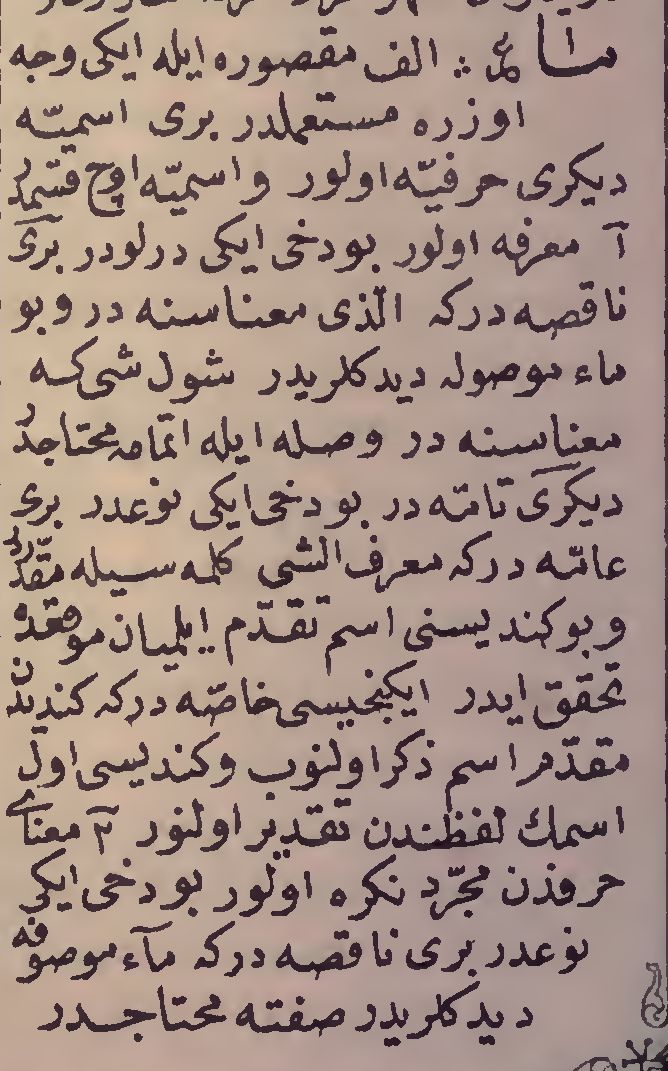 ما ؏ : الف مقصوره ايله ايكى وجه
اوزره مستعملدر برى اسميّه
ديكرى حرفيّه اولور واسميّه اوچ قسمدر
آ معرفه اولور بودخى ايكى درلودر برى
ناقصه دركه الّذى معناسنه در وبو
ماء موصوله ديدكلريدر شول شى كه
معناسنه در وصله ايله اتمامه محتاجدر
ديكرى تامّه در بودخى ايكى نوعدر برى
عامّه دركه معرف الشى كلمه سيله مقدّردر
وبو كنديسنى اسم تقدّم ايلميان موقعده
تحقق ايدر ايكنجيسى خاصّه دركه كنديدن
مقدّم اسم ذكر اولنوب وكنديسى اول
اسمك لفظندن تقدير اولنور ٢ معناى
حرفدن مجرّد نكره اولور بودخى ايكى
نوعدر برى ناقصه دركه مآء موصوفه
ديدكلريدر صفته محتاجدر